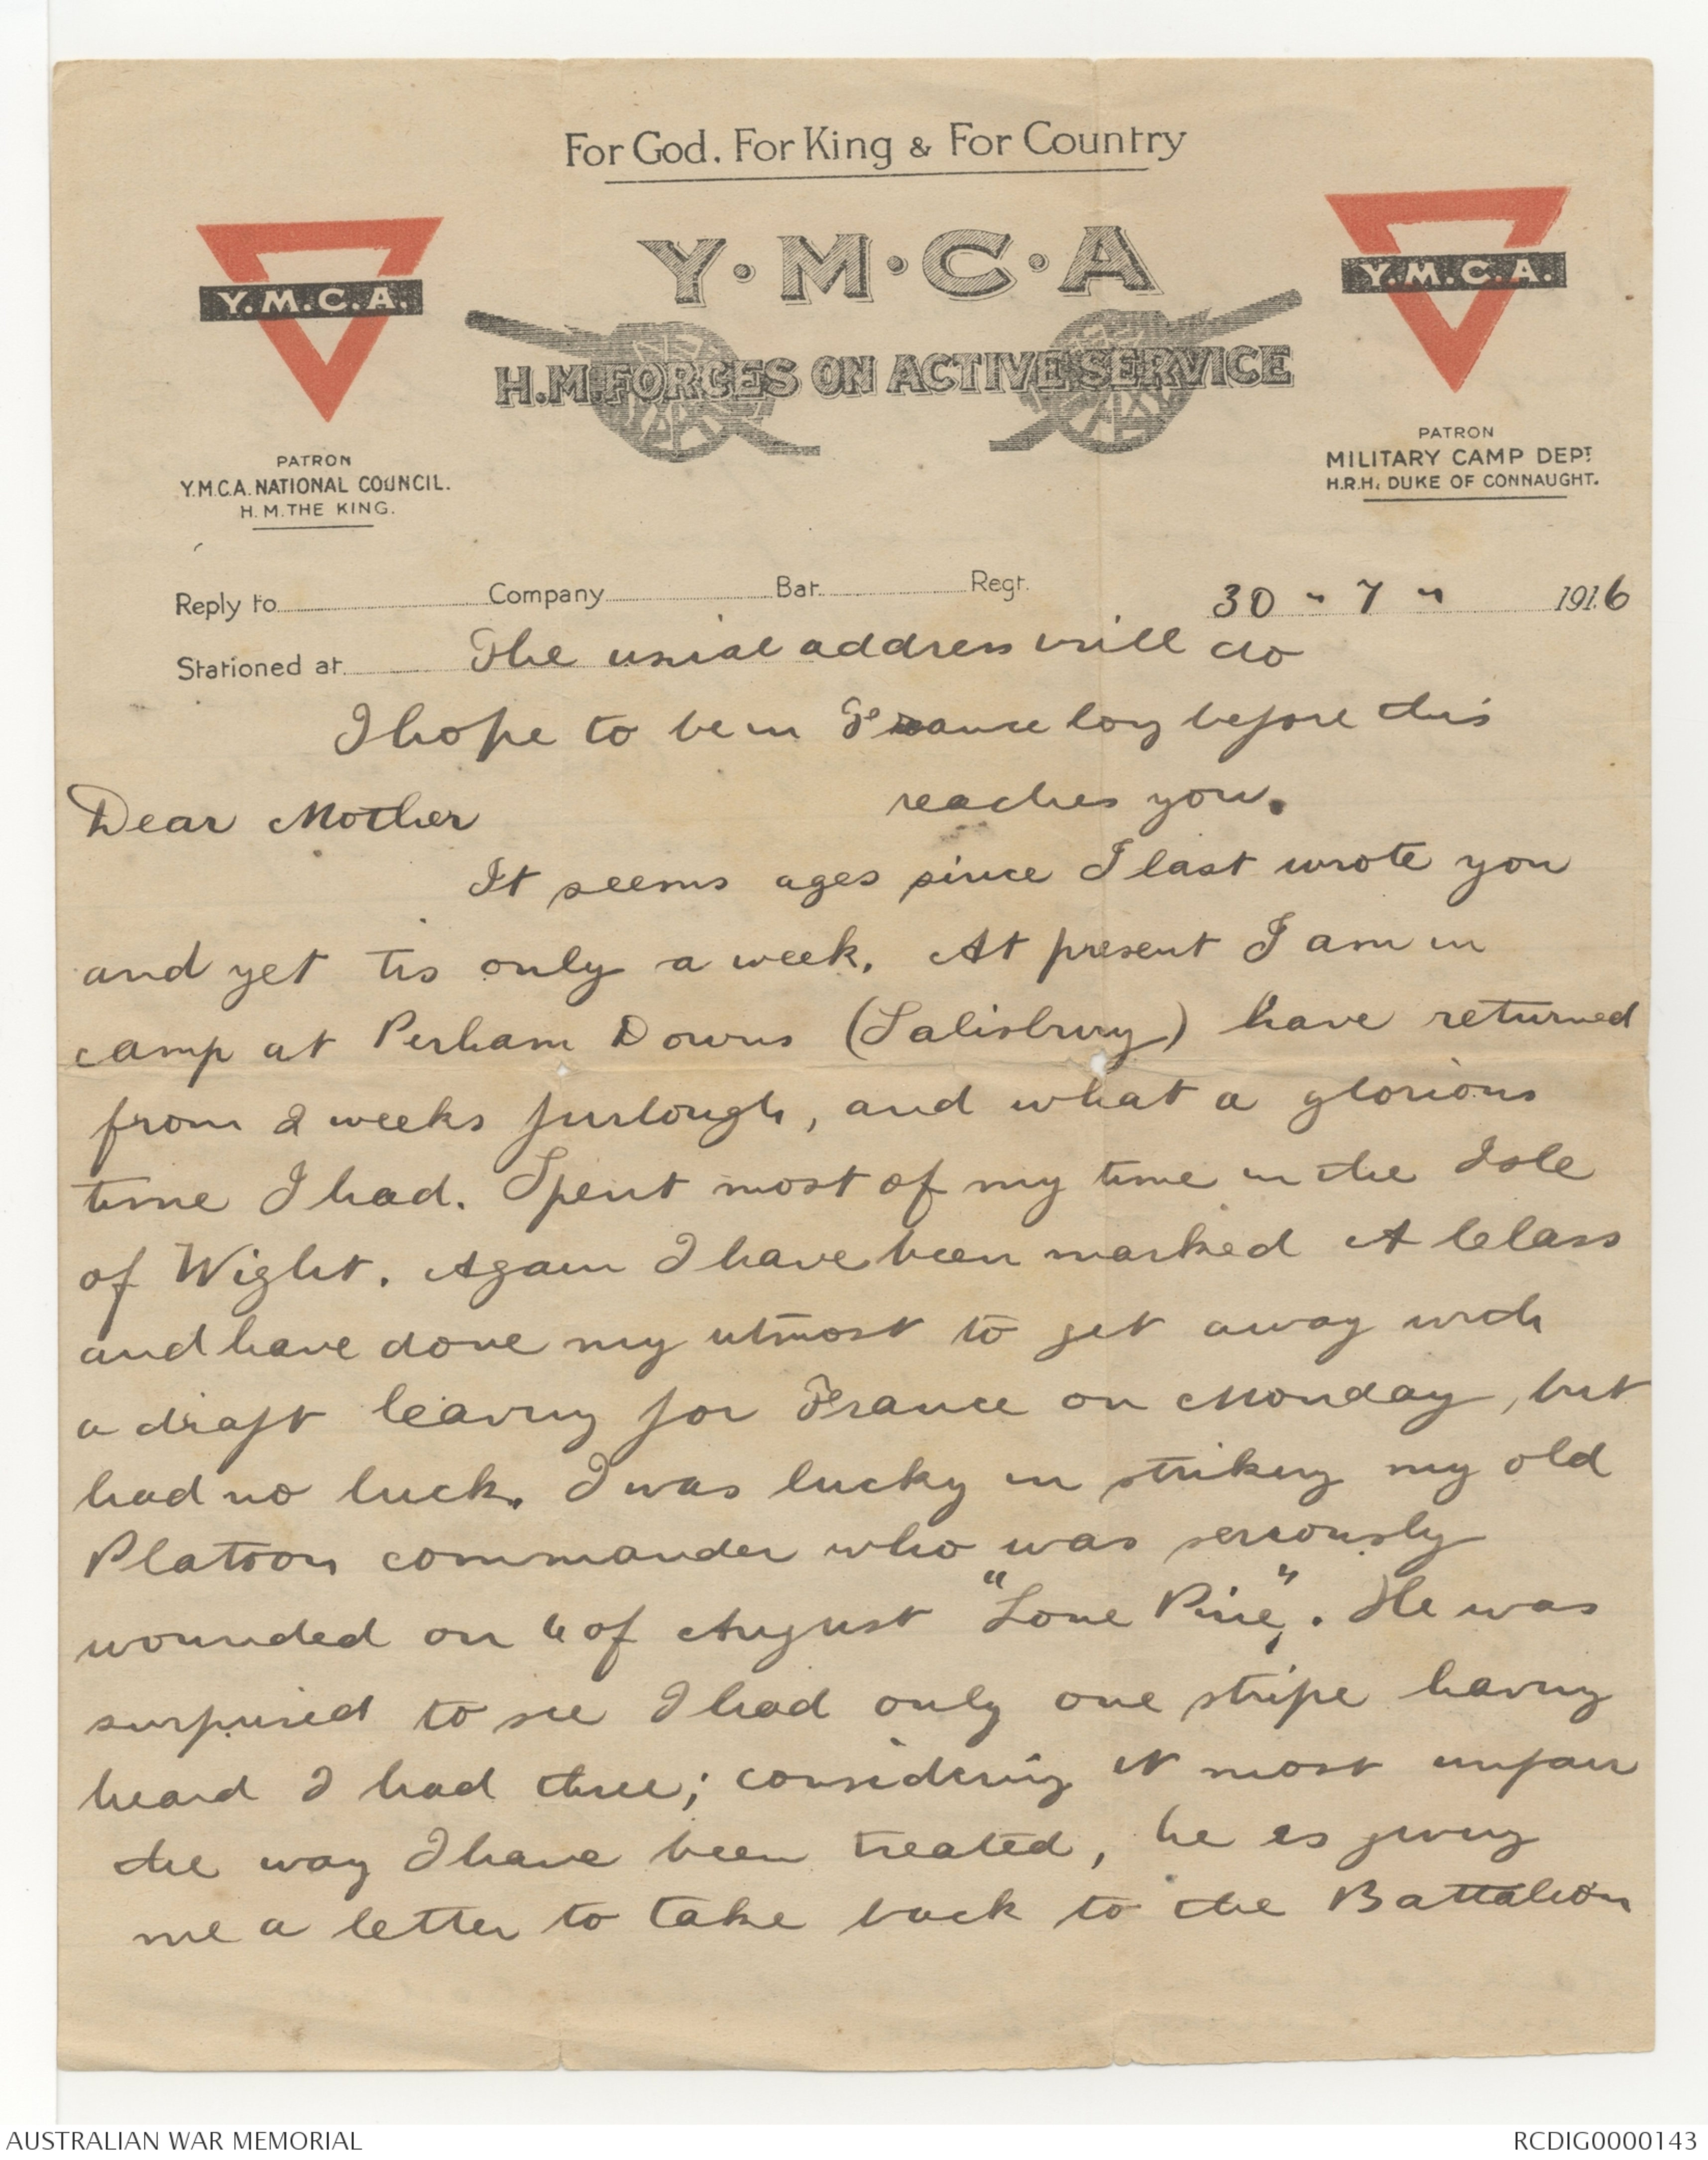 For God. For King & For Country
Y.M.C.A
Y.M.C.A.
Y.M.C.A.
H.M. FORCES ON ACTIVE SERVICE
PATRON
Y.M.C.A. NATIONAL COUNCIL.
H.M. THE KING.
PATRON
MILITARY CAMP DEPT
H.R.H. DUKE OF CONNAUGHT.
Reply to Company Bat. Regt. 30 " 7 " 1916
Stationed at The usual address will do
I hope to be in France long before this
reaches you.
Dear Mother
It seems ages since I last wrote you
and yet tis only a week. At present I am in
camp at Perham Downs (Salisbury) have returned
from 2 weeks furlough, and what a glorious
time I had. Spent most of my time in the Isle
of Wight. Again I have been marked A Class
and have done my utmost to get away with
a draft leaving for France on Monday, but
had no luck. I was lucky in striking my old
Platoon commander who was seriously
wounded on 6 of August "Lone Pine". He was
surprised to see I had only one stripe having
heard I had three; considering it most unfair
the way I have been treated, he is giving
me a letter to take back to the Battalion
AUSTRALIAN WAR MEMORIAL
RCDIG0000143